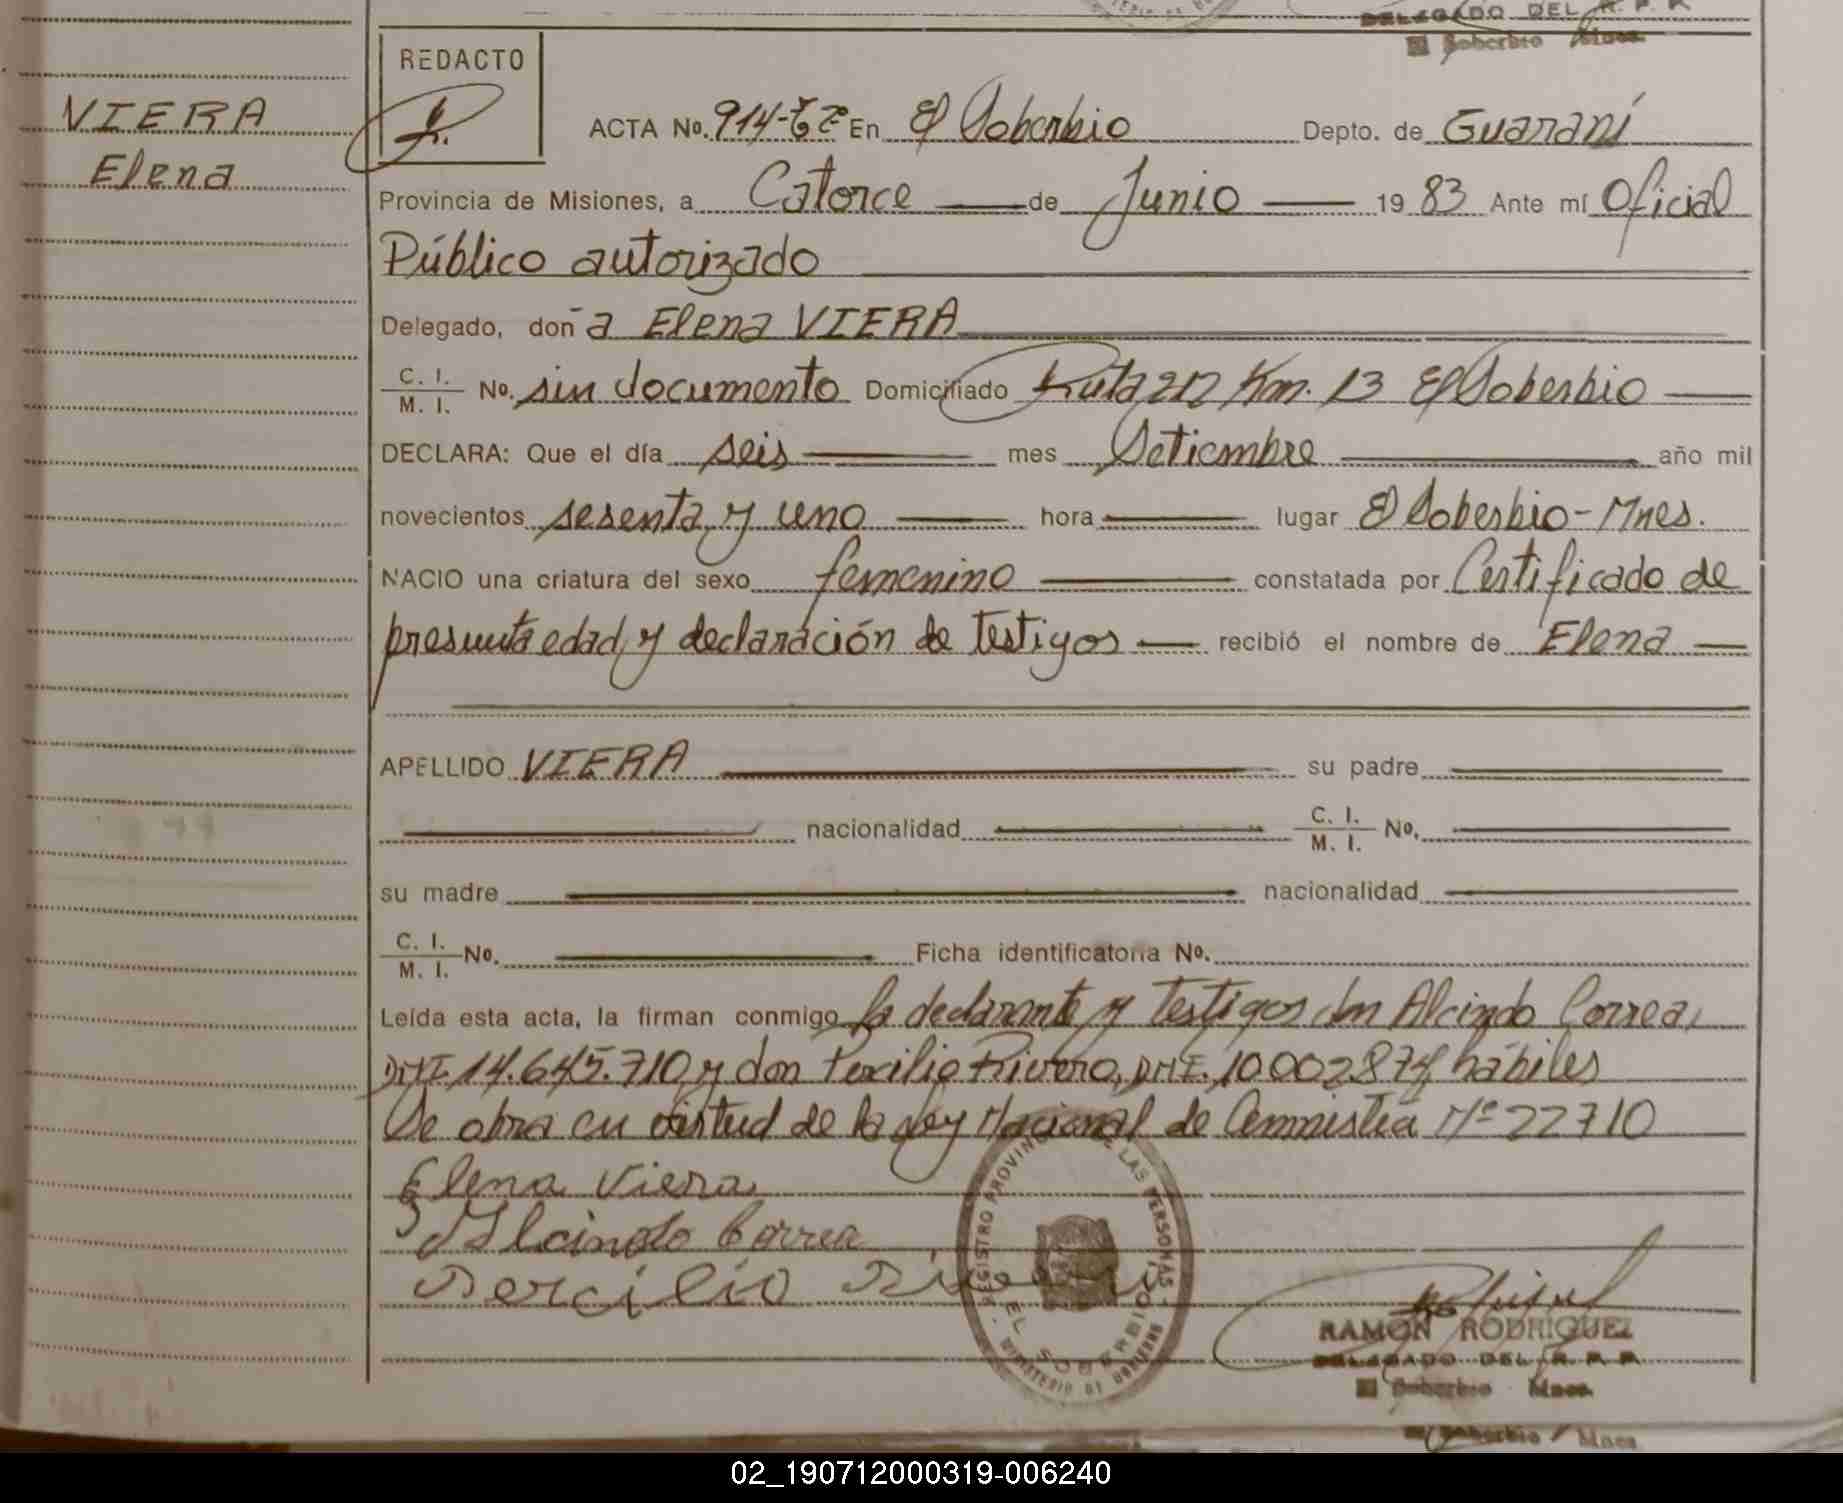 DELEGADO DEL R. P. P.
El Soberbio Mnes.
REDACTO
VIERA
Elena
ACTA No. 914-Tº 2º En El Soberbio Depto. de Guaraní
Provincia de Misiones, a Catorce de Junio 1983 Ante mí Oficial
Público autorizado
Delegado, don a Elena VIERA
C. I.
M. I. No. sin documento Domiciliado Ruta 212 Km. 13 El Soberbio
DECLARA: Que el día seis mes Setiembre año mil
novecientos sesenta y uno hora lugar El Soberbio-Mnes.
NACIO una criatura del sexo femenino constatada por Certificado de
presunta edad y declaración de testigos recibió el nombre de Elena
APELLIDO VIERA su padre
nacionalidad C. I.
M. I. No.
su madre nacionalidad
C. I.
M. I. No. Ficha identificatoria No.
Leída esta acta, la firman conmigo la declarante y testigos don Alcindo Correa,
DNI. 14.645.710 y don Percilio Rivero, DNI. 10.002.874 hábiles
Se obra en virtud de la Ley Nacional de Ammistía Nº 22710
Elena Viera
Alcindo Correa
Percilio Rivero
REGISTRO PROVINCIAL DE LAS PERSONAS
EL SOBERBIO
MINISTERIO DE GOBIERNO
RAMON RODRIGUEZ
DELEGADO DEL R. P. P.
El Soberbio Mnes.
El Soberbio Mnes
02_190712000319-006240